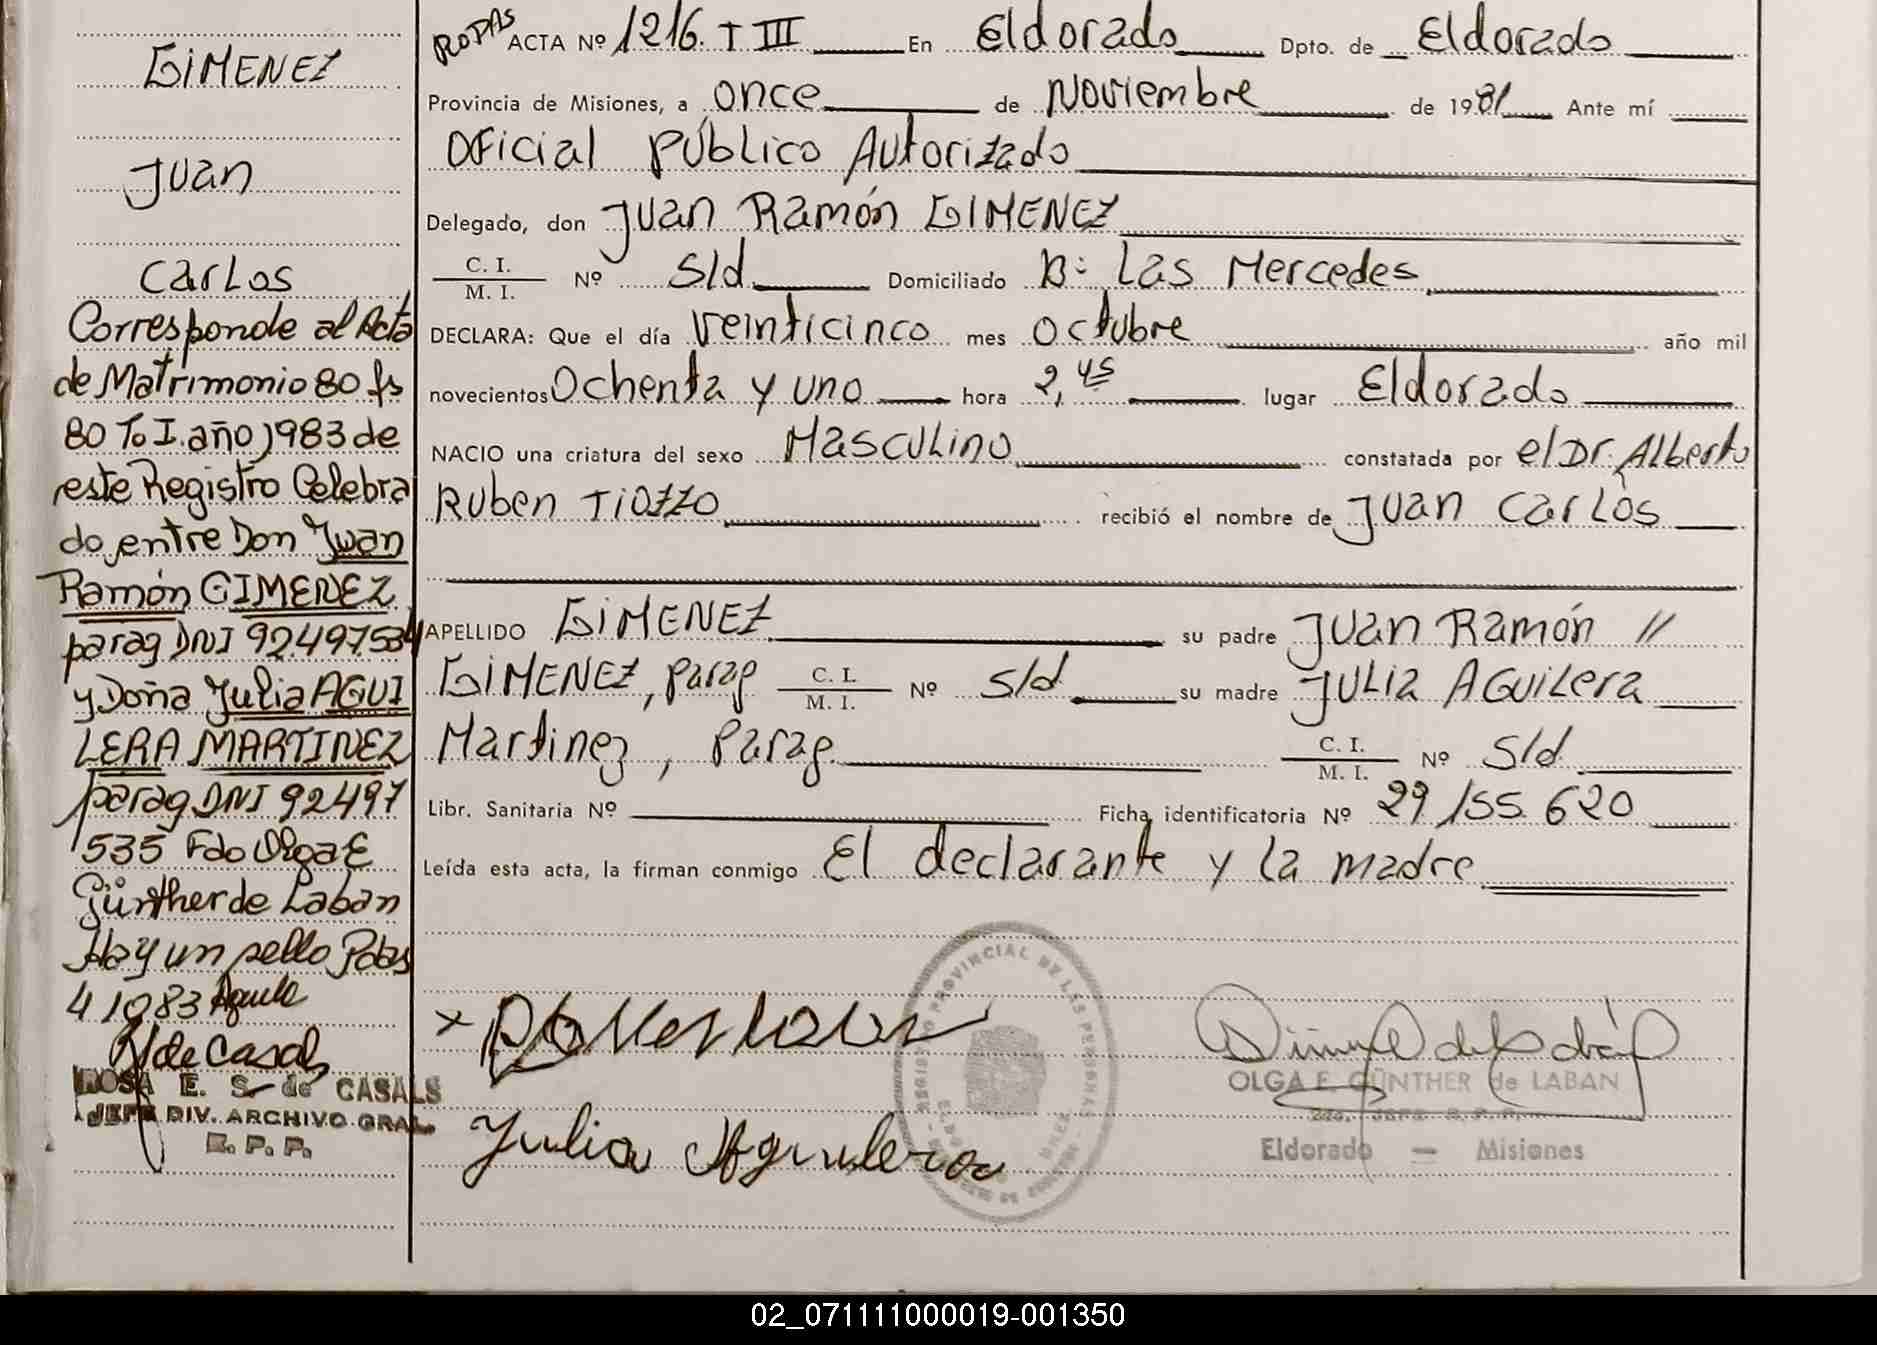 GIMENEZ
Juan
Carlos
Corresponde al Acta
de Matrimonio 80 fs
80 To I. año 1983 de
este Registro Celebra
do, entre Don Juan
Ramón GIMENEZ
parag DNI 92.497.534
y Doña Julia AGUI
LERA MARTINEZ
parag DNI 92497
535 Fdo Olga E
Günther de Laban
Hay un sello Pdas
4 10 83
R de Casals
ROSA E. S. de CASALS
JEFE DIV. ARCHIVO GRAL.
R. P. P.
RODAS ACTA Nº 1216. T III En Eldorado Dpto. de Eldorado
Provincia de Misiones, a once de Noviembre de 1981 Ante mí
Oficial Público Autorizado
Delegado, don Juan Ramón GIMENEZ
C. I.
M. I. Nº S/d Domiciliado B: Las Mercedes
DECLARA: Que el día veinticinco mes Octubre año mil
novecientos Ochenta y uno hora 2,45 lugar Eldorado
NACIO una criatura del sexo Masculino constatada por el Dr. Alberto
Ruben Tiozzo recibió el nombre de Juan Carlos
APELLIDO GIMENEZ su padre Juan Ramón //
GIMENEZ, Parag C. I.
M. I. Nº S/d su madre Julia Aguilera
Martinez, Parag. C. I.
M. I. Nº S/d
Libr. Sanitaria Nº Ficha identificatoria Nº 29/155.620
Leída esta acta, la firman conmigo El declarante y la madre
Julia Aguilera
REGISTRO PROVINCIAL DE LAS PERSONAS
OLGA E. GÜNTHER de LABAN
2do. JEFE R. P. P.
Eldorado — Misiones
02_071111000019-001350